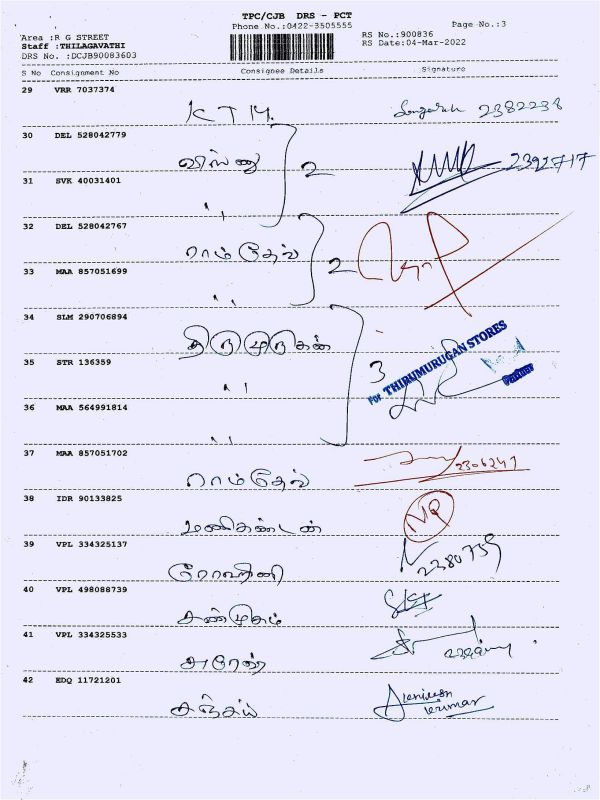 TPC/CJB DRS - PCT
Phone No.:0422-3505555
Page No.:3
Area :R G STREET
RS No.:900836
Staff :THILAGAVATHI
RS Date:04-Mar-2022
DRS No. :DCJB90083603
S No Consignment No Consignee Details Signature
29 VRR 7037374
K T M. 2382238
30 DEL 528042779
விஸ்ணு 2 2392717
31 SVK 40031401
"
32 DEL 528042767
ராம்தேவ் 2
33 MAA 857051699
"
34 SLM 290706894
திருமுருகன்
35 STR 136359
" 3
For THIRUMURUGAN STORES
Partner
36 MAA 564991814
"
37 MAA 857051702
ராம்தேவ் 2306247
38 IDR 90133825
மணிகண்டன்
39 VPL 334325137
ரோஹினி 2380759
40 VPL 498088739
சண்முகம்
41 VPL 334325533
42 EDQ 11721201
சஞ்சய்